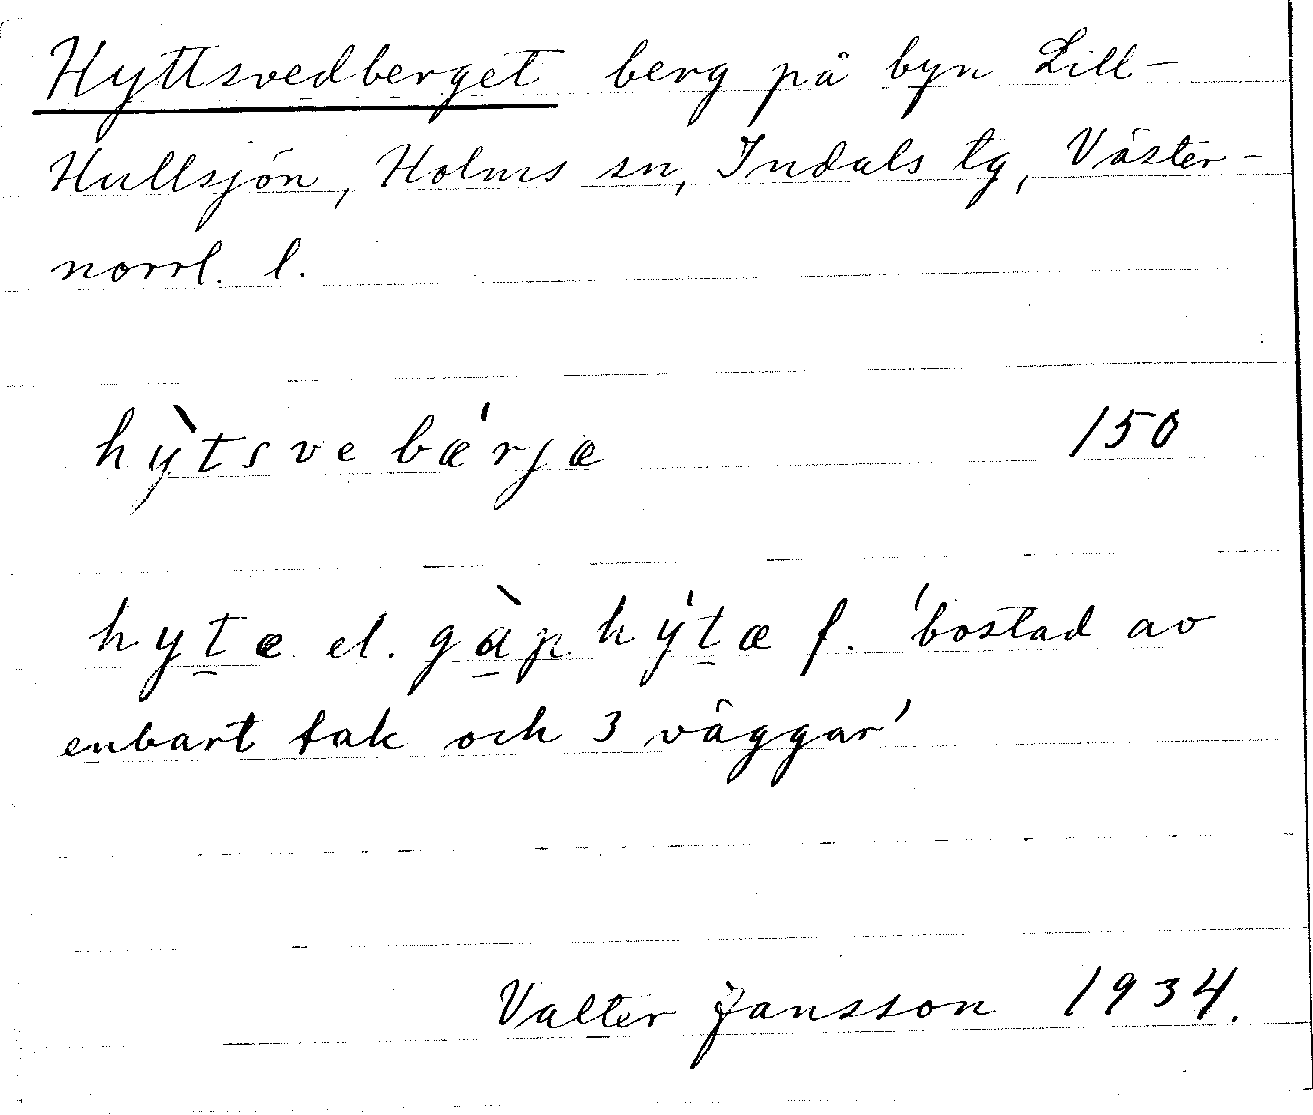 Hyttsvedberget berg på byn Lill-
Hullsjön, Holms sn, Indals tg, Väster-
norrl. l.
hỳtsvebǽrjæ 150
hytæ el. gàphýtæ f. 'bostad av
enbart tak och 3 väggar'
Valter Jansson 1934.